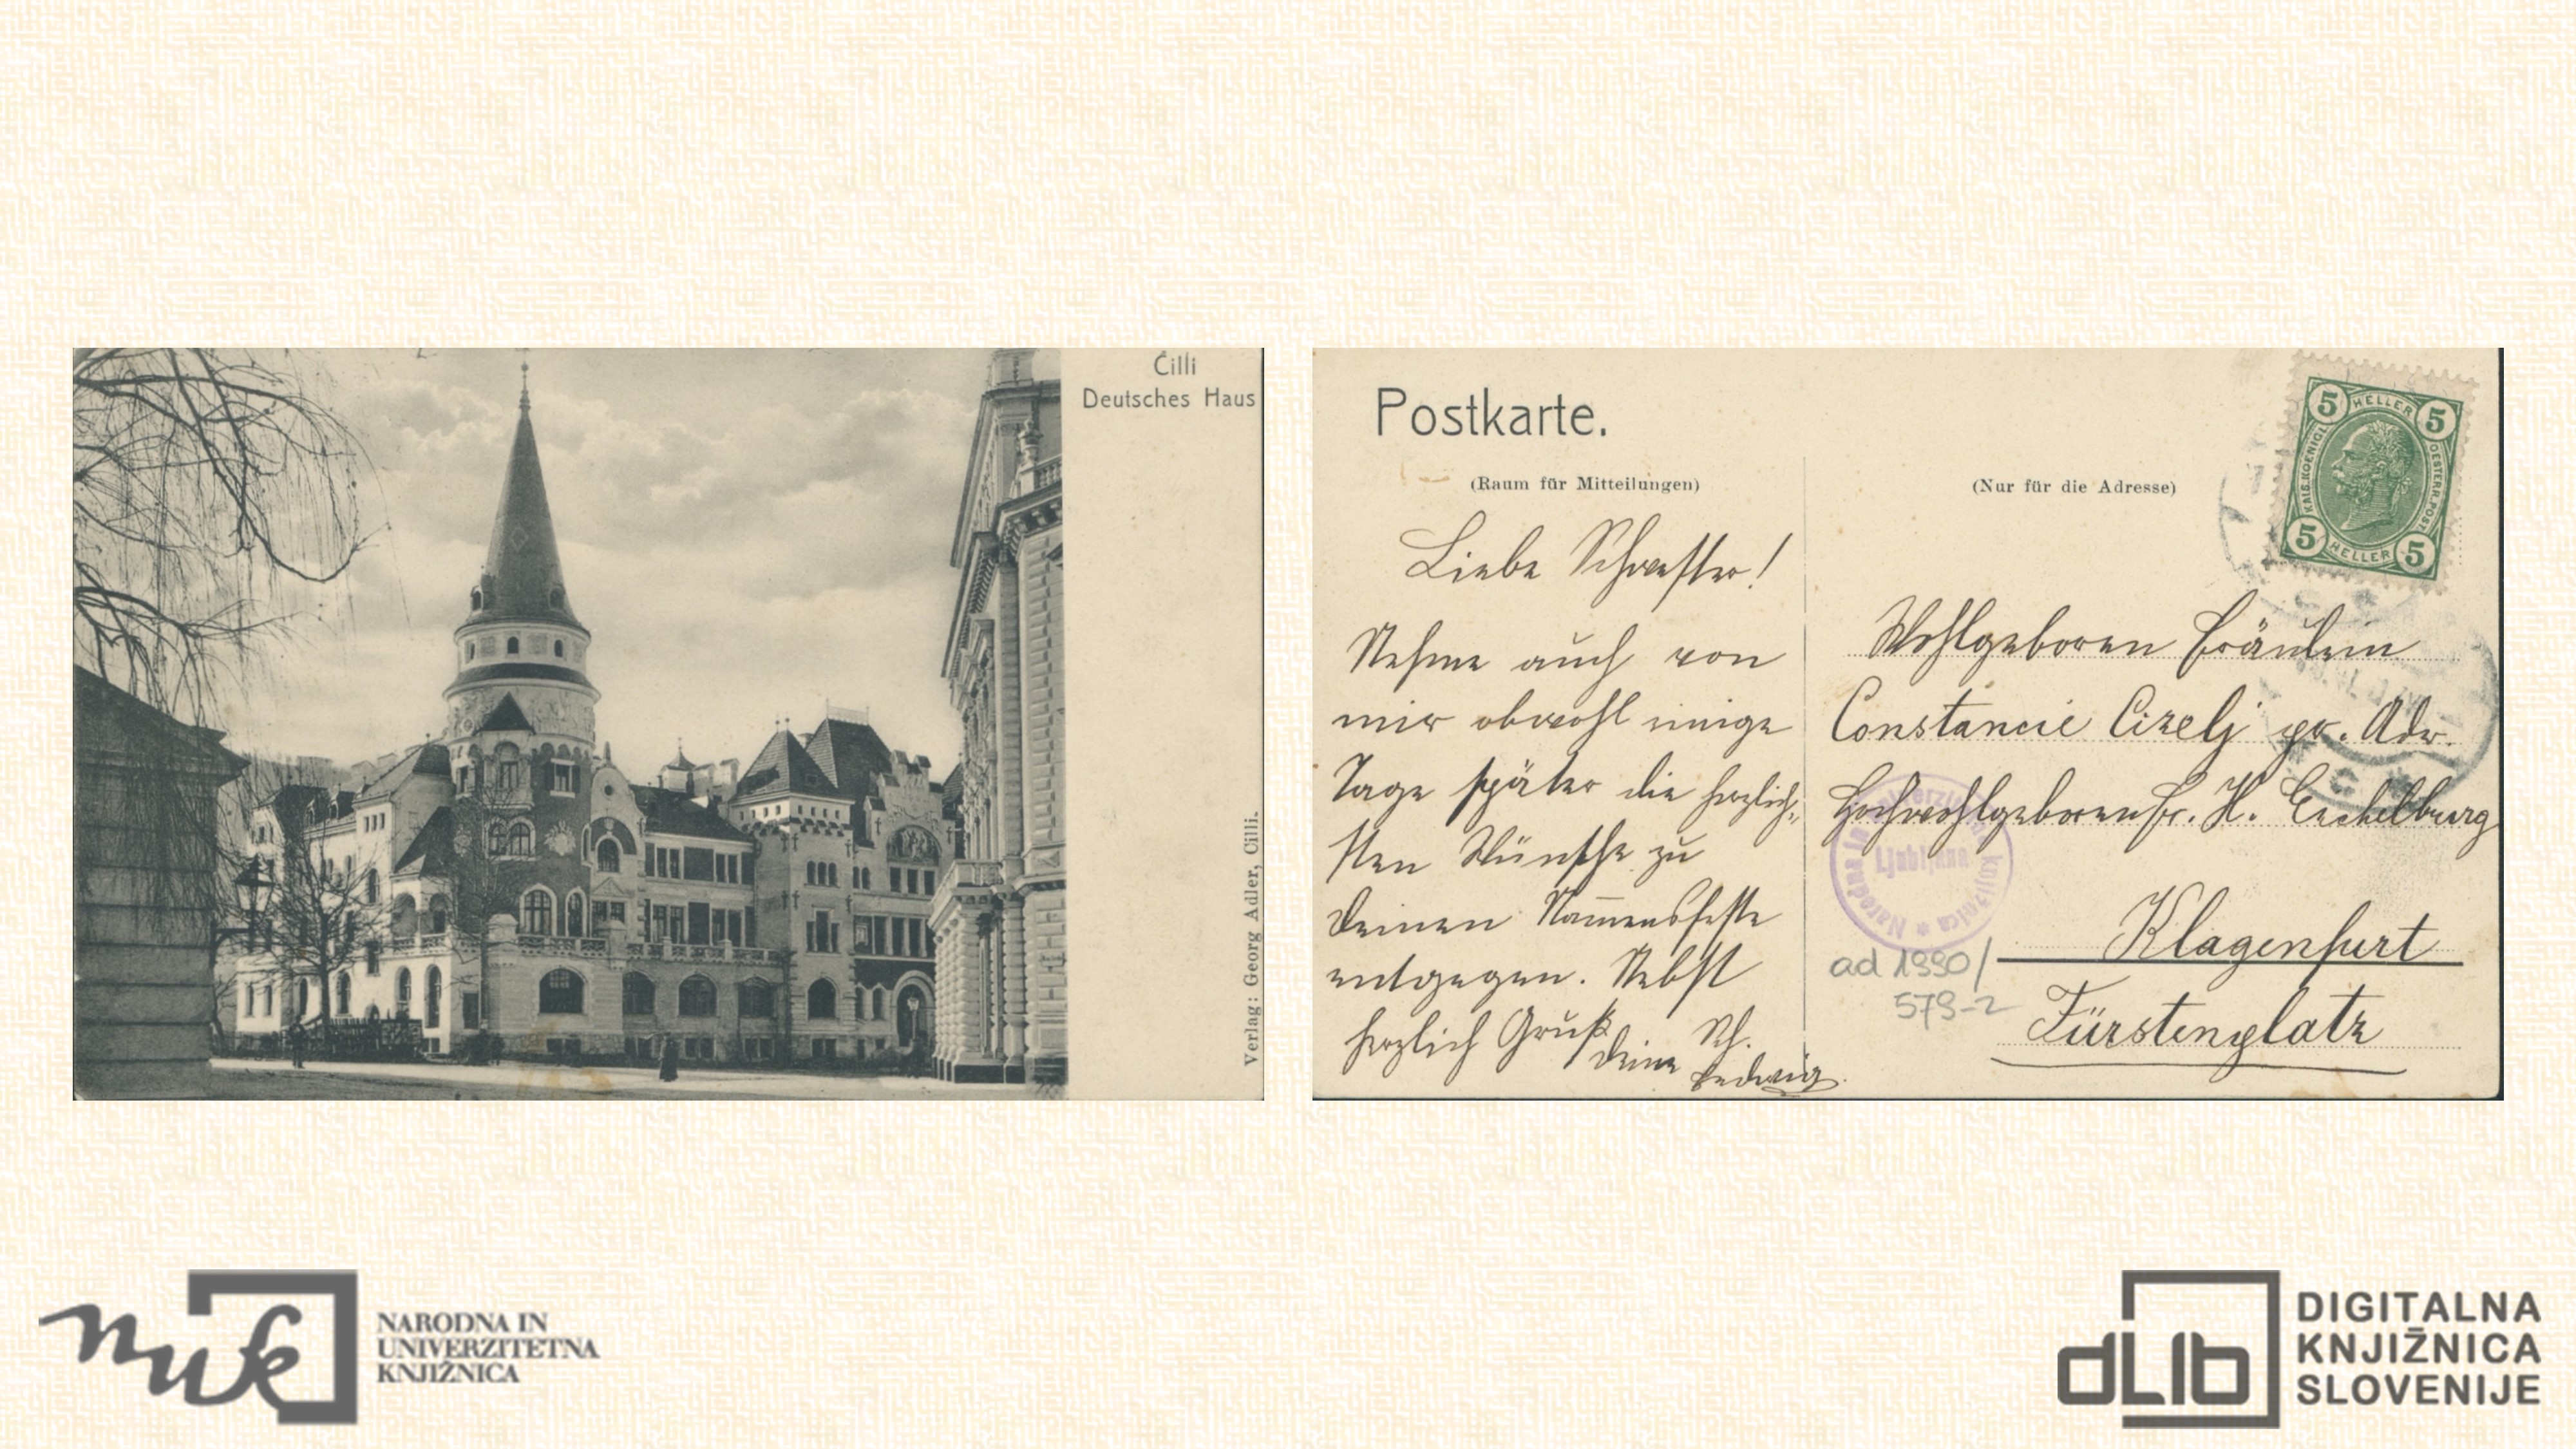 Cilli
Deutsches Haus
Verlag: Georg Adler, Cilli.
Postkarte.
(Raum für Mitteilungen)
(Nur für die Adresse)
5 HELLER 5
KAIS. KOENIGL. OESTERR. POST
5 HELLER 5
Liebe Schwester!
Nehme auch von
mir obwohl einige
Tage später die herzlich„
sten Wünsche zu
Deinen Namensfeste
entgegen. Nebst
herzlich Gruß
Deine Sch.
Hedwig
Wohlgeboren Fräulein
Constancie Cizelj pr. Adr.
Hochwohlgeboren Fr. H. Eschelburg
Klagenfurt
Fürstenplatz
Ljubljana
ad 1990/
579-2
nuk
NARODNA IN
UNIVERZITETNA
KNJIŽNICA
dLib
DIGITALNA
KNJIŽNICA
SLOVENIJE